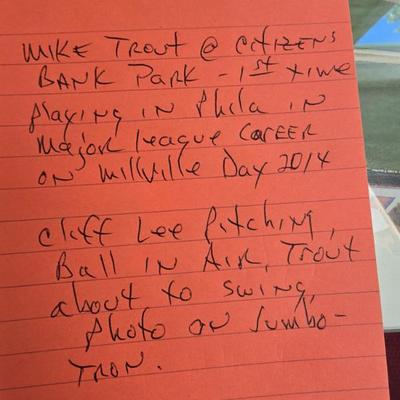 MIKE TROUT @ CITIZENS
BANK PARK - 1st time
playing in Phila in
Major league CAREER
ON Millville Day 2014
Cliff Lee Pitching,
Ball in Air, Trout
about to swing,
Photo on Jumbo-
TRON.